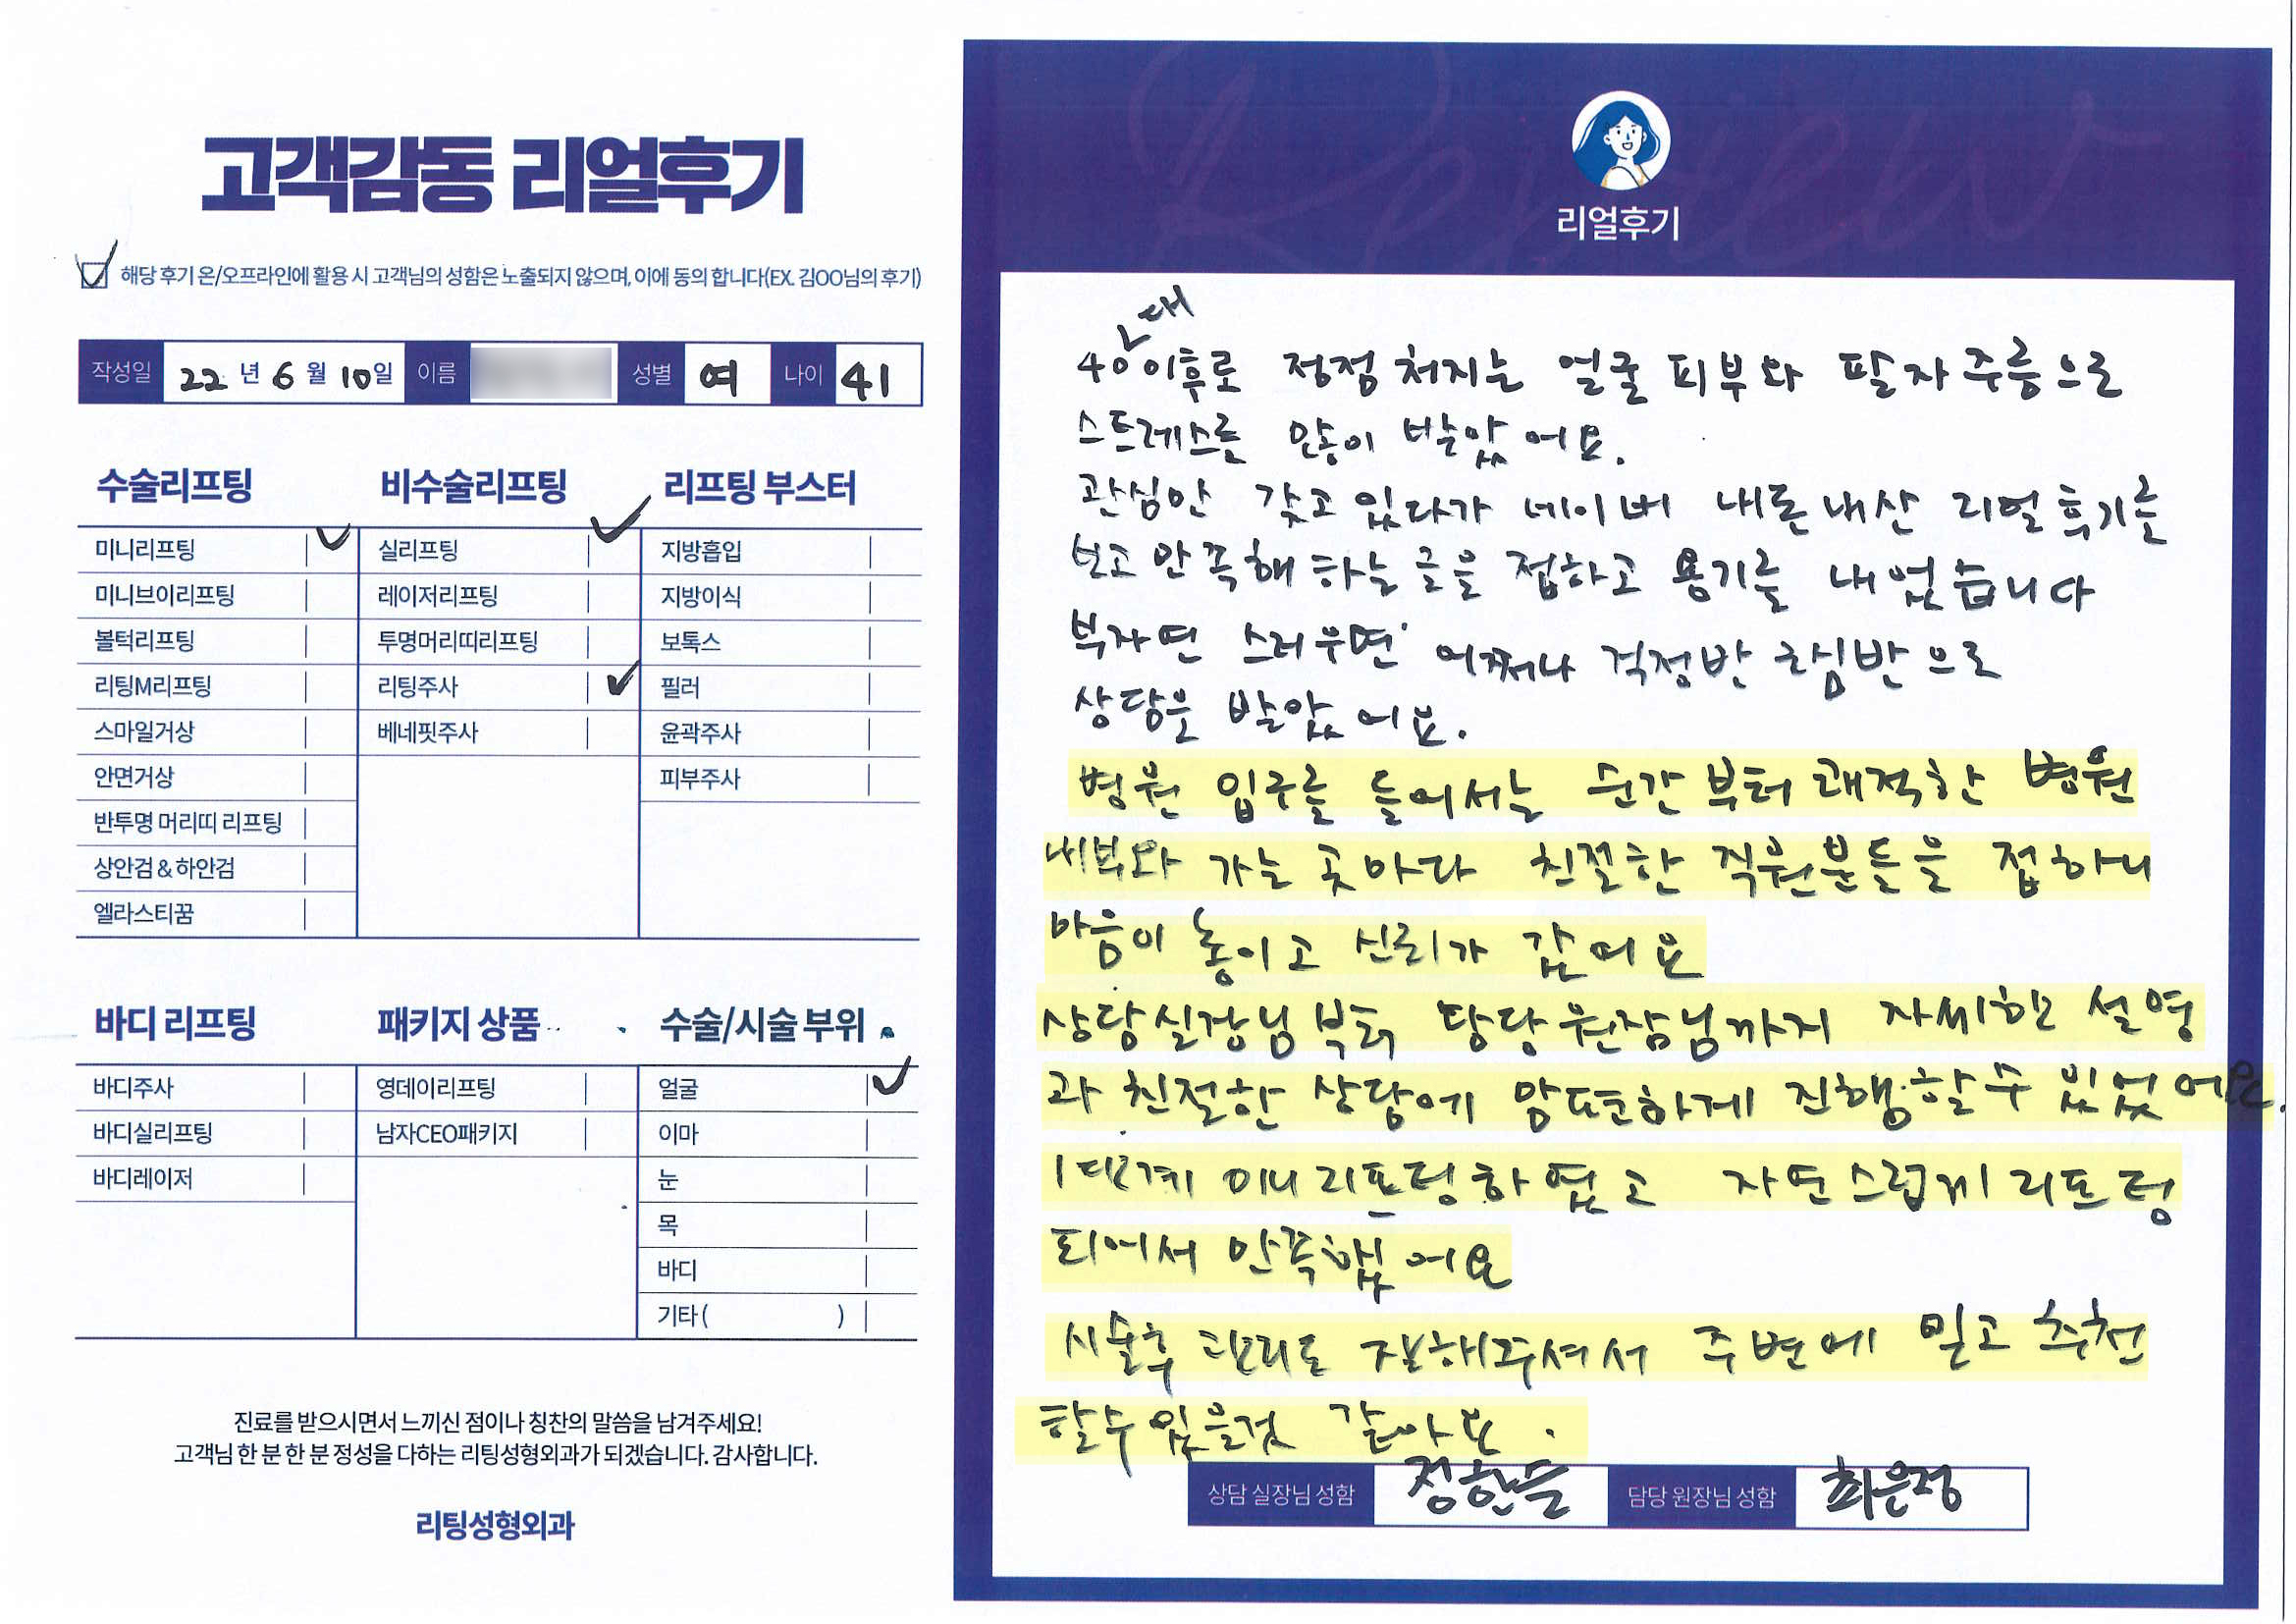 고객감동 리얼후기
해당 후기 온/오프라인에 활용 시 고객님의 성함은 노출되지 않으며, 이에 동의 합니다(EX. 김OO님의 후기)
작성일 22 년 6 월 10 일 이름 성별 여 나이 41
수술리프팅
미니리프팅
미니브이리프팅
볼턱리프팅
리팅M리프팅
스마일거상
안면거상
반투명 머리띠 리프팅
상안검 & 하안검
엘라스티꿈
비수술리프팅
실리프팅
레이저리프팅
투명머리띠리프팅
리팅주사
베네핏주사
리프팅 부스터
지방흡입
지방이식
보톡스
필러
윤곽주사
피부주사
바디 리프팅
바디주사
바디실리프팅
바디레이저
패키지 상품
영데이리프팅
남자CEO패키지
수술/시술 부위
얼굴
이마
눈
목
바디
기타 ( )
진료를 받으시면서 느끼신 점이나 칭찬의 말씀을 남겨주세요!
고객님 한 분 한 분 정성을 다하는 리팅성형외과가 되겠습니다. 감사합니다.
리팅성형외과
Review
리얼후기
40대 이후로 정점 처지는 얼굴 피부와 팔자 주름으로
스트레스를 많이 받았어요.
관심만 갖고 있다가 네이버 내돈내산 리얼 후기를
보고 만족해 하는 글을 접하고 용기를 내었습니다
부자연 스러우면 어쩌나 걱정반 으로
상담을 받았어요.
병원 입구를 들어서는 순간 부터 쾌적한 병원
내부와 가는 곳마다 친절한 직원분들을 접하니
마음이 놓이고 신뢰가 갔어요
상담실장님 부터 담당 원장님까지 자세한 설명
과 친절한 상담에 진행할수 있었어요.
1단계 미니리프팅하였고 자연스럽게 리프팅
되어서 만족했어요
시술후 관리도 잘해주셔서 주변에 믿고 추천
할수 있을것 같아요.
상담 실장님 성함 정한슬 담당 원장님 성함 최은정